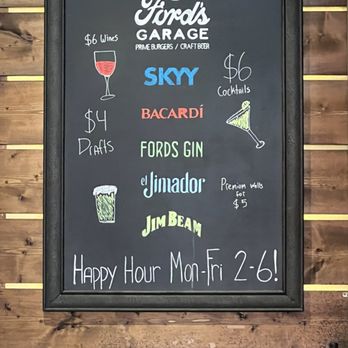 Ford's
GARAGE
PRIME BURGERS / CRAFT BEER
$6 Wines
SKYY
$6
Cocktails
BACARDÍ
$4
Drafts
FORDS GIN
el Jimador
Premium Wells
for
$5
JIM BEAM
HAPPY HOUR MON-FRI 2-6!